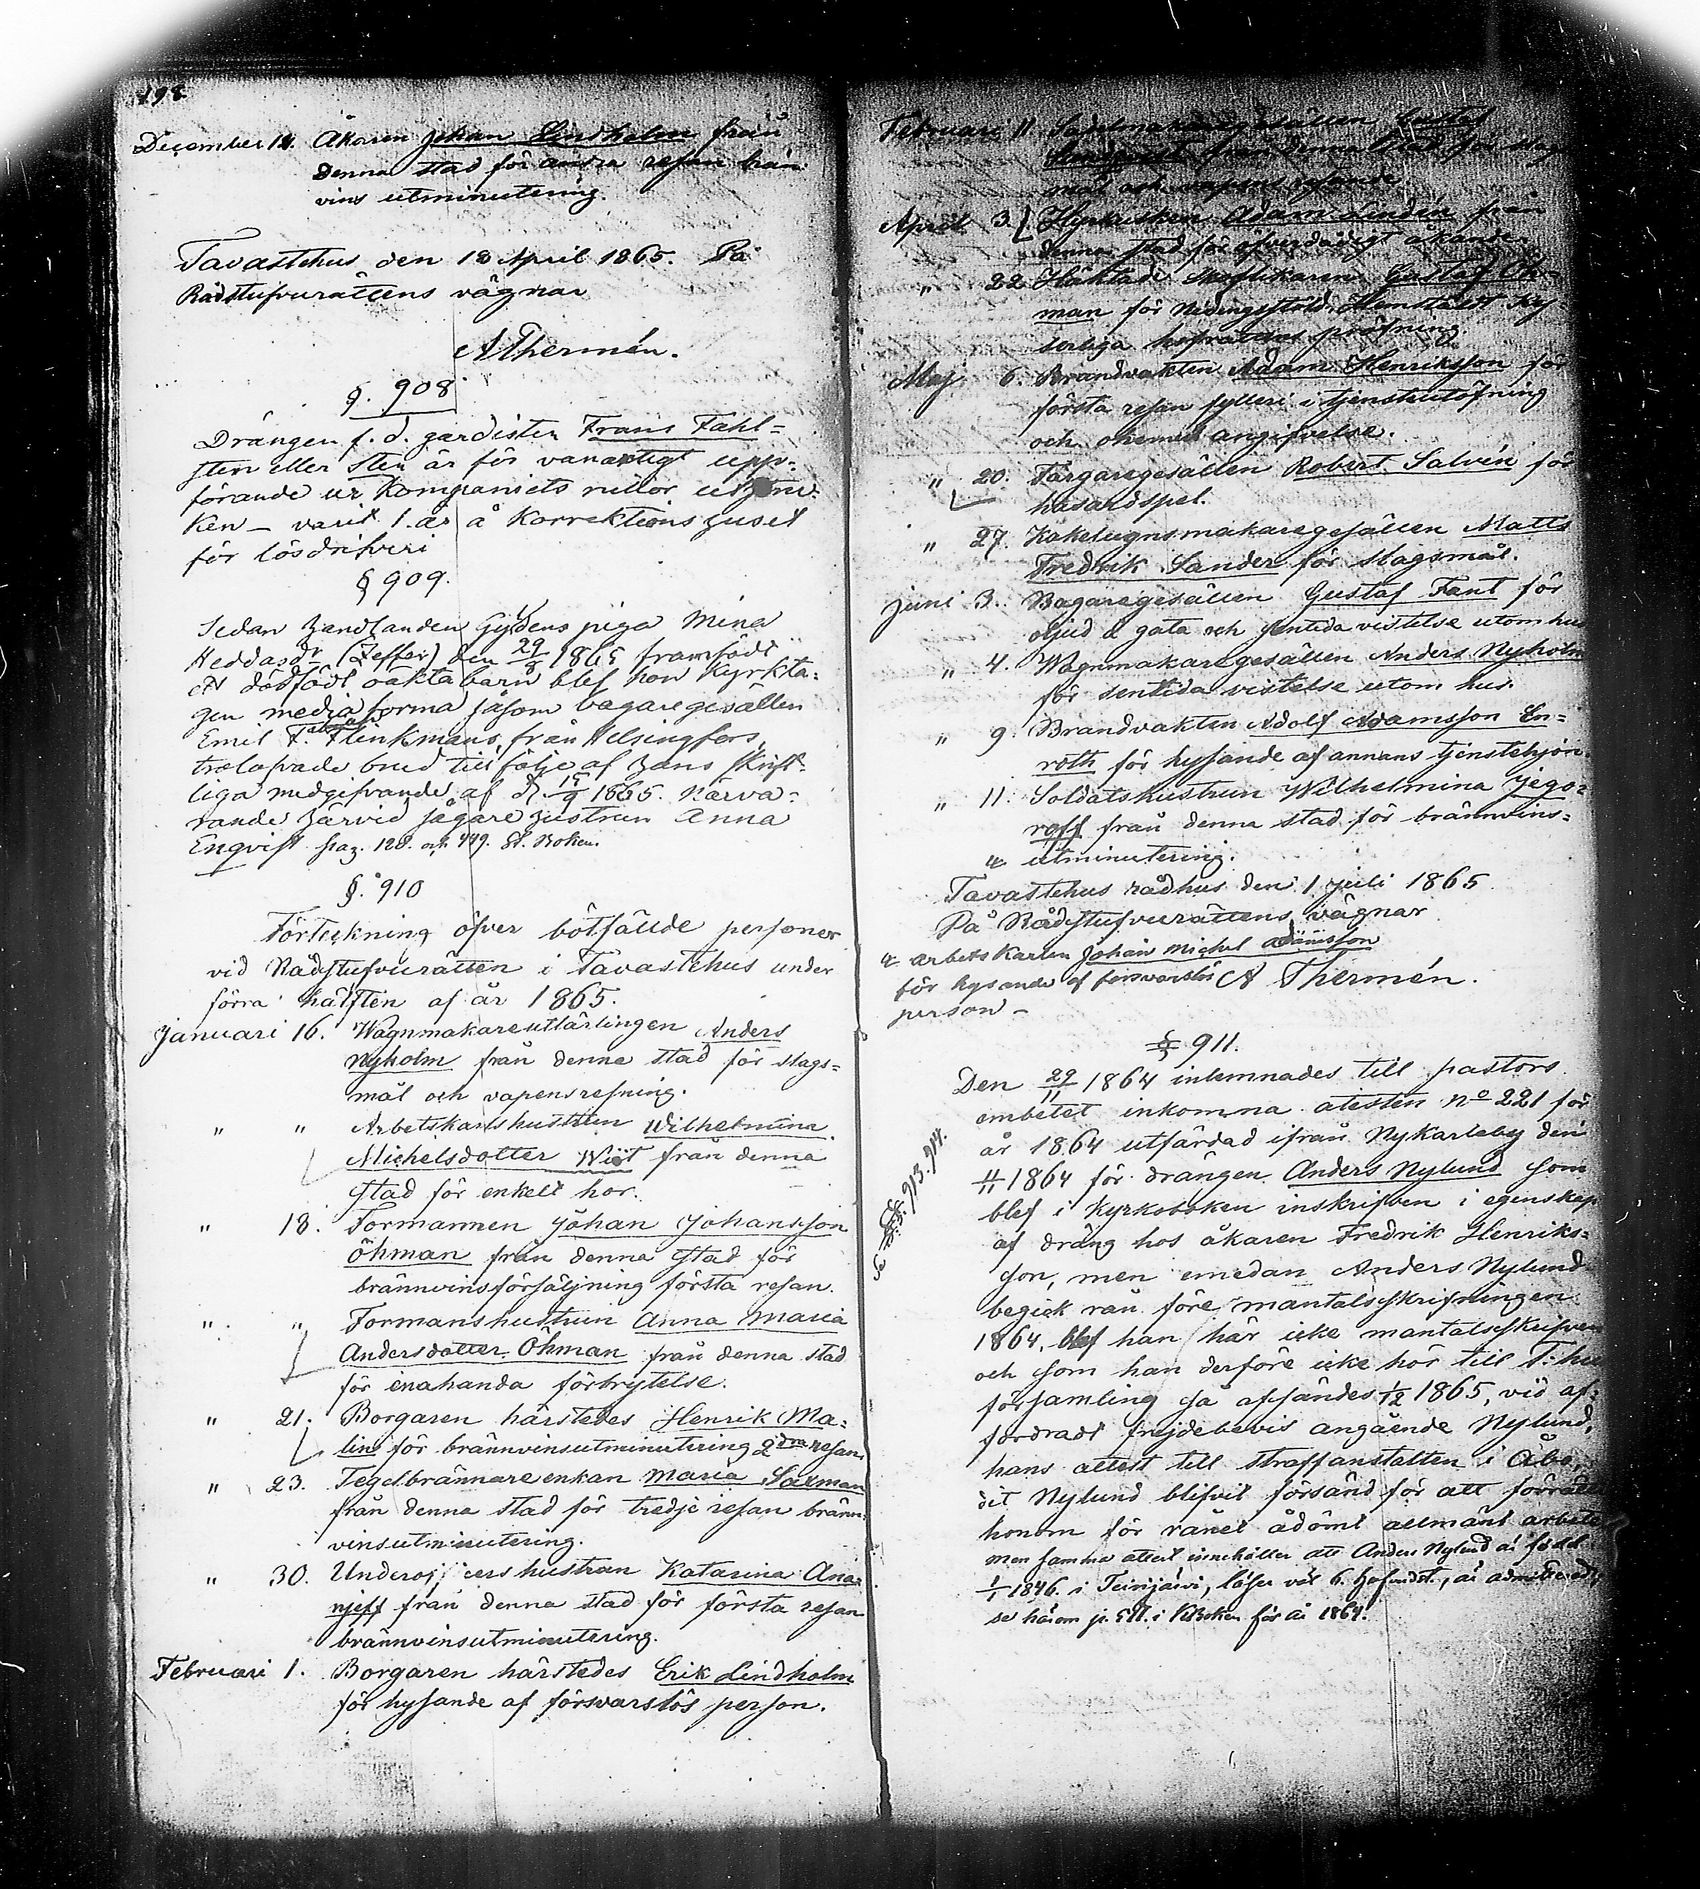 198
December 14. Åkaren Johan Lindholm från
denna stad för andra resan brän-
vins utminutering.
Tavastehus den 18 April 1865. På
Rådstufvurättens vägnar
A Thermén.
§. 908
Drängen f. d. gardisten Frans Fahl=
sten eller Sten är för vanartigt upp-
förande ur Kompaniets rullor utstru-
ken – varit 1. år å Korrektionshuset
för lösdrifveri
§ 909.
Sedan handlanden Gyldens piga Mina
Heddasdr (Zeffer) den 29/8 1865 framfödt
ett dödfödt oäkta barn blef hon kyrkta-
gen media forma såsom bagaregesällen
Emil F. Flinkmans, från Helsingfors,
trolofvade brud till följe af hans skrift-
liga medgifvande af d. 15/9 1865. Närva-
rande härvid jägare hustrun Anna
Enqvist pag. 128. och 449. St. Boken.
§. 910
Förteckning öfver bötfällde personer
vid Rådstufvurätten i Tavastehus under
förra hälften af år 1865.
Januari 16. Wagnmakareutlärlingen Anders
Nyholm från denna stad för slags=
mål och vapensresning.
" " Arbetskarlshustrun Wilhelmina
Michelsdotter Wiit från denna
stad för enkelt hor.
" 18. Formannen Johan Johansson
Öhman från denna stad för
brännvinsförsäljning första resan.
" " Formanshustrun Anna Maria
Andersdotter Öhman från denna stad
för enahanda förbrytelse.
" 21. Borgaren härstedes Henrik Ma-
lin för brännvinsutminutering 2dra resan
" 23. Tegelbrännareenkan Maria Saxman
från denna stad för tredje resan bränn-
vinsutminutering.
" 30. Underofficers hustran Katarina Ana-
njeff från denna stad för första resan
brännvinsutminutering.
Februari 1. Borgaren härstedes Erik Lindholm
för hysande af försvarslös person.
Februari 11 Sadelmakaregesällen Gustaf
från denna stad för slags
mål och vapens
April 3. Hyrkusken Adam Lindén från
denna stad för öfverdådigt åkande.
" 22 Häktade skoflikaren Gustaf Öh-
man för Nidingsstöld. Hemstäldt Kej
serliga hofrättens pröfning
Maj 6. Brandvakten Adam Henriksson för
första resan fylleri i tjensteutöfning
och ohemul angifvelse.
" 20. Färgaregesällen Robert Salvén för
hasardspel.
" 27. Kakelugnsmakaregesällen Matts
Fredrik Sander för slagsmål.
Juni 3. Bagaregesällen Gustaf Fant för
oljud å gata och sentida vistelse utom hus
" 4. Wagnmakaregesällen Anders Nyholm
för sentida vistelse utom hus.
" 9. Brandvakten Adolf Adamsson En=
roth för hysande af annans tjenstehjon.
" 11. Soldatshustrun Wilhelmina Jego=
roff från denna stad för brännvins=
utminutering.
Tavastehus rådhus den 1 Juli 1865
På Rådstufvurättens vägnar
arbetskarlen Johan Michel Adamsson
för hysande af försvarslös A Thermén.
person –
§ 911.
Den 29/11 1864 inlemnades till pastors
embetet inkomna atesten No 221 för
år 1864 utfärdad ifrån Nykarleby den
11/11 1864 för drängen Anders Nylund som
blef i kyrkoboken inskrifven i egenskap
af dräng hos åkaren Fredrik Henriks=
son, men emedan Anders Nylund
begick rån före mantalsskrifningen
1864, blef han här icke mantalsskrifven
och som han derföre icke hör till T:hus
församling så afsändes 1/12 1865, vid af-
fordradt frejdebevis angående Nylund,
hans attest till straffanstalten i Åbo,
dit Nylund blifvit försänd för att förrätta
honom för rånet ådömt allmänt arbete
men samma attest innehåller att Anders Nylund är född
1/1 1846. i Teirijärvi, läser väl 6. hufvudst., är admitterad,
se härom p. 511. i KBoken för år 1864.
Se §§. 913. 914.